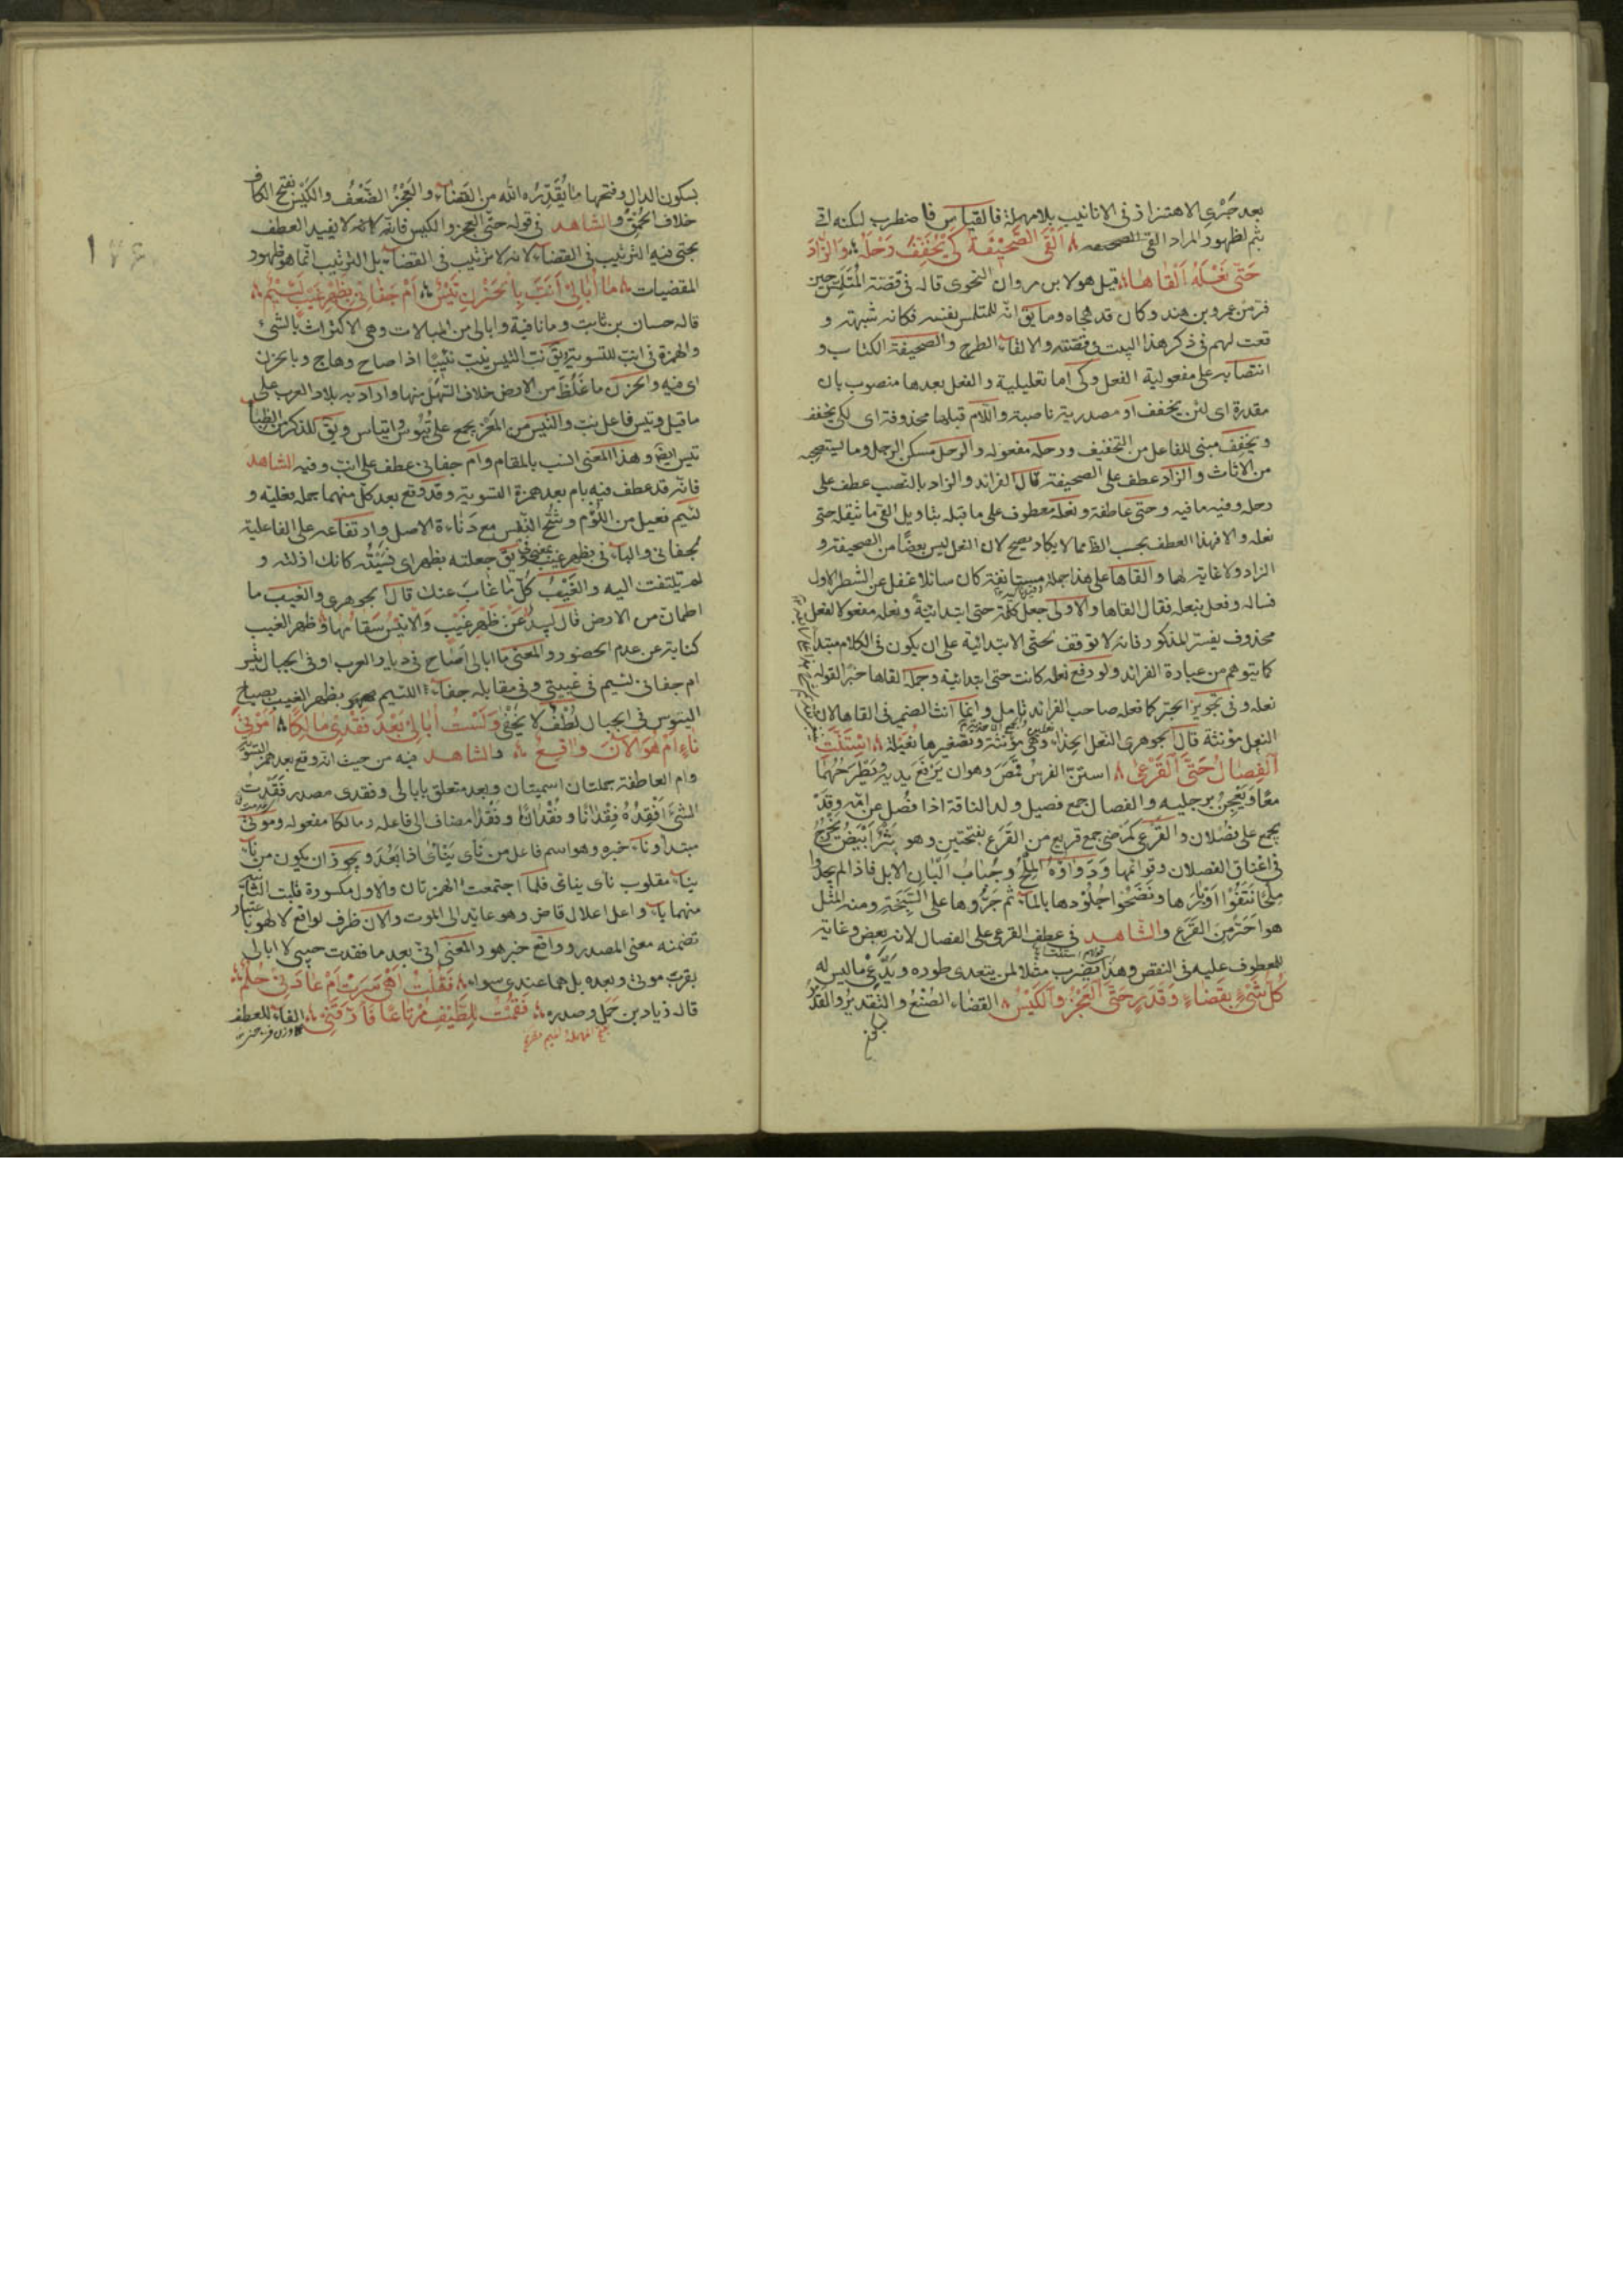 بعد جَرْيِ الاهتزاز فى الانابيب بلا مهملة فالقياس فاضطرب لكنه اتى
بثم لظهور المراد القى الصحيفه اَلْقَى الصَّحِيْفَةَ كَىْ يُخَفِّفَ رَحْلَهُ وَالزَّادَ
حَتَّى نَعْلَهُ اَلْقَاهَا قيل هو لابن مروان النحوى قاله فى قصّة المُتَلَمِّسِ حين
فرّ من عمرو بن هند وكان قد هجاه وما يق انّه للمتلمس نفسه فكانه شبهته و
قعت لهم فى ذكر هذا البيت فى قصّته والالقاء الطرح والصحيفة الكتاب و
انتصابه على مفعولية الفعل وكى اما تعليلية والفعل بعدها منصوب بان
مقدرة اى لئن يخفف او مصدرية ناصبة واللام قبلها محذوفة اى لكى يخفف
ويخفِّف مبنى للفاعل من التخفيف ورحله مفعوله والرحل مسكن الرجل وما ليستصحبه
من الاثاث والزاد عطف على الصحيفة قال الفرائد والزاد بالنصب عطف على
رحله وفيه ما فيه وحتى عاطفة ونعله معطوف على ما قبله بتاويل القى ما يثقله حتى
نعله والا فهذا العطف بحسب الظ مما لا يكاد يصح لان النعل ليس بعضًا من الصحيفة و
الزاد ولا غاية لها والقاها على هذا جملة مستانفة كان سائلا غفل عن الشطر الاول
فساله وفعل بنعله فقال القاها والاولى جعل كلمة حتى ابتدائيةً ونعله مفعولا لفعل
محذوف يفسّر المذكور فانه لا توقف لحتى الابتدائية على ان يكون فى الكلام مبتدا
كما يتوهم من عبارة الفرائد ولو رفع نعله كانت حتى ابتدائية وجملة القاها خبرًا لقوله
نعله وفى تجويز الجر كما فعله صاحب الفرائد تامل وانما آنث الضمير فى القاها لان
النعل مؤنثة قال الجوهرى النعل الحذاء وهى مؤنثة وتصغيرها نُعَيلة اِسْتَنَّتِ
اَلْفِصَالُ حَتَّى اَلْقَرْعَى استنّ الفرسُ قَمَصَ وهو ان يَرْفَعَ يديه ويَطْرَحَهُما
معًا وَيَعْجِنَ برجليه والفصال جمع فصيل ولد الناقة اذا فُصل عن امّه وقد
يجمع على فُصْلان والقَرْعى كمَرْضى جمع قريع من القَرَع بفتحتين وهو بَثْرٌ اَبْيَضُ يَخْرُجُ
فى اعناق الفصلان وقوائمها وَدَوَاؤهُ المِلْحُ وجُبابُ اَلبانِ الابل فاذا لم يجدوا
مِلْحًا نتَفُوْا اَوْبَارَها ونَضَحُوا جُلُوْدها بالماء ثم جَرُّوها على السَّبَخَةِ ومنه المَثَل
هو اَحَرُّ من القَرَع والشاهد فى عطف القرعى على الفصال لانه بعض وغاية
للمعطوف عليه فى النقص وهذا يُضرب مثلا لمن يتعدى طوره ويَدَّعِىْ ما ليس له
كُلُّ شَىْءٍ بِقَضَاءٍ وَقَدَرٍ حَتَّى اَلْعَجْزُ وَاَلْكَيْسُ القضاء الصُنْعُ والتَّقديرُ والقَدْرُ
بسكون الدال وفتحها ما يُقَدِّرُه اللّٰه من القضاء والعَجْزُ الضَّعْفُ والكَيْسُ بفتح الكاف
خلاف الحُمْقِ والشاهد فى قوله حتى العجز والكيس فانّه لانه لا يفيد العطف
بحتى فيه الترتيب فى القضاء لانه لا ترتيب فى القضاء بل الترتيب انّما هو فى ظهور
المقضيات مَا اُبَالِىْ اَنَبَّ بِالْحَزْنِ تَيْسٌ اَمْ جَفَانِىْ بِظَهْرِ غَيْبٍ لَئِيْمٌ
قاله حسان بن ثابت وما نافية وابالى من المبالات وهى الاكتراث بالشئ
والهمزة فى انبّ للتسوية يق نَبّ التيس يَنِبّ نَبِيْبًا اذا صاح وهاج وبالحزن
اى فيه والحزن ما غَلُظَ من الارض خلاف السَّهْل منها واراد به بلاد العرب على
ما قيل وتيس فاعل نبّ والتيس من المَعْز يجمع على تُيُوس واتياس ويق للذكر من الظباء
تيس ايضً وهذا المعنى انسب بالمقام وام جفانى عطف على انبّ وفيه الشاهد
فانّه قد عطف فيه بام بعد همزة التسوية وقد وقع بعد كلّ منهما جملة فعلية و
لئيم فعيل من اللُؤْم وشُحّ النَفْس مع دَناءة الاصل وارتفاعه على الفاعلية
لجفانى والباء فى بظهر غيب بمعنى فى ويق جعلته بظهر اى نَسِيْتُه كانك اذللته و
لم تلتفت اليه والغَيْبُ كلّ ما غَابَ عنك قال الجوهرى والغيب ما
اطمان من الارض قال لبيد عَنْ ظَهْرِ غَيْبٍ وَالاَنِيْسُ سَقَامُهَا وظهر الغيب
كناية عن عدم الحضور والمعنى ما ابالى اَصَاح فى ديار العرب او فى الجبال تيس
ام جفانى لئيم فى غيبتى وفى مقابلة جفاء اللئيم بظهر الغيب بصياح
التيوس فى الجبال لُطْفٌ لا يخفى وَلَسْتُ اُبَالِىْ بَعْدَ فَقْدِىْ مَالِكًا اَمَوْتِىْ
نَاءٍ اَمْ هُوَ الْآنَ وَاقِعٌ والشاهد فيه من حيث انه وقع بعد همزة التسوية
وام العاطفة جملتان اسميتان وبعد متعلق بابالى وفقدى مصدر فَقَدْتُ
الشئَ اَفْقِدُهُ فِقْدَانًا وفُقْدانًا وفَقْدًا مضاف الى فاعله ومالكا مفعوله وموتى
مبتدا وناء خبره وهو اسم فاعل من نَأى يَنْأى اذا بَعُدَ ويجوز ان يكون من ناءَ
يناء مقلوب نأى ينأى فلما اجتمعت الهمزتان والاول مكسورة قلبت الثانية
منهما ياء واعل اعلال قاض وهو عائد الى الموت والآن ظرف لواقع لا لهو باعتبار
تضمنه معنى المصدر وواقع خبر هو والمعنى انى بعد ما فقدت حبيبى لا ابالى
بقرب موتى وبعده بل هما عندى سواء فَقُلْتُ اَهْىَ سَرَتْ اَمْ عَادَنِىْ حُلُمٌ
قاله زياد بن حَمَل وصدره فَقُمْتُ لِلطَّيْفِ مُرْتَاعًا فَاَرَّقَنِىْ الفاء للعطف